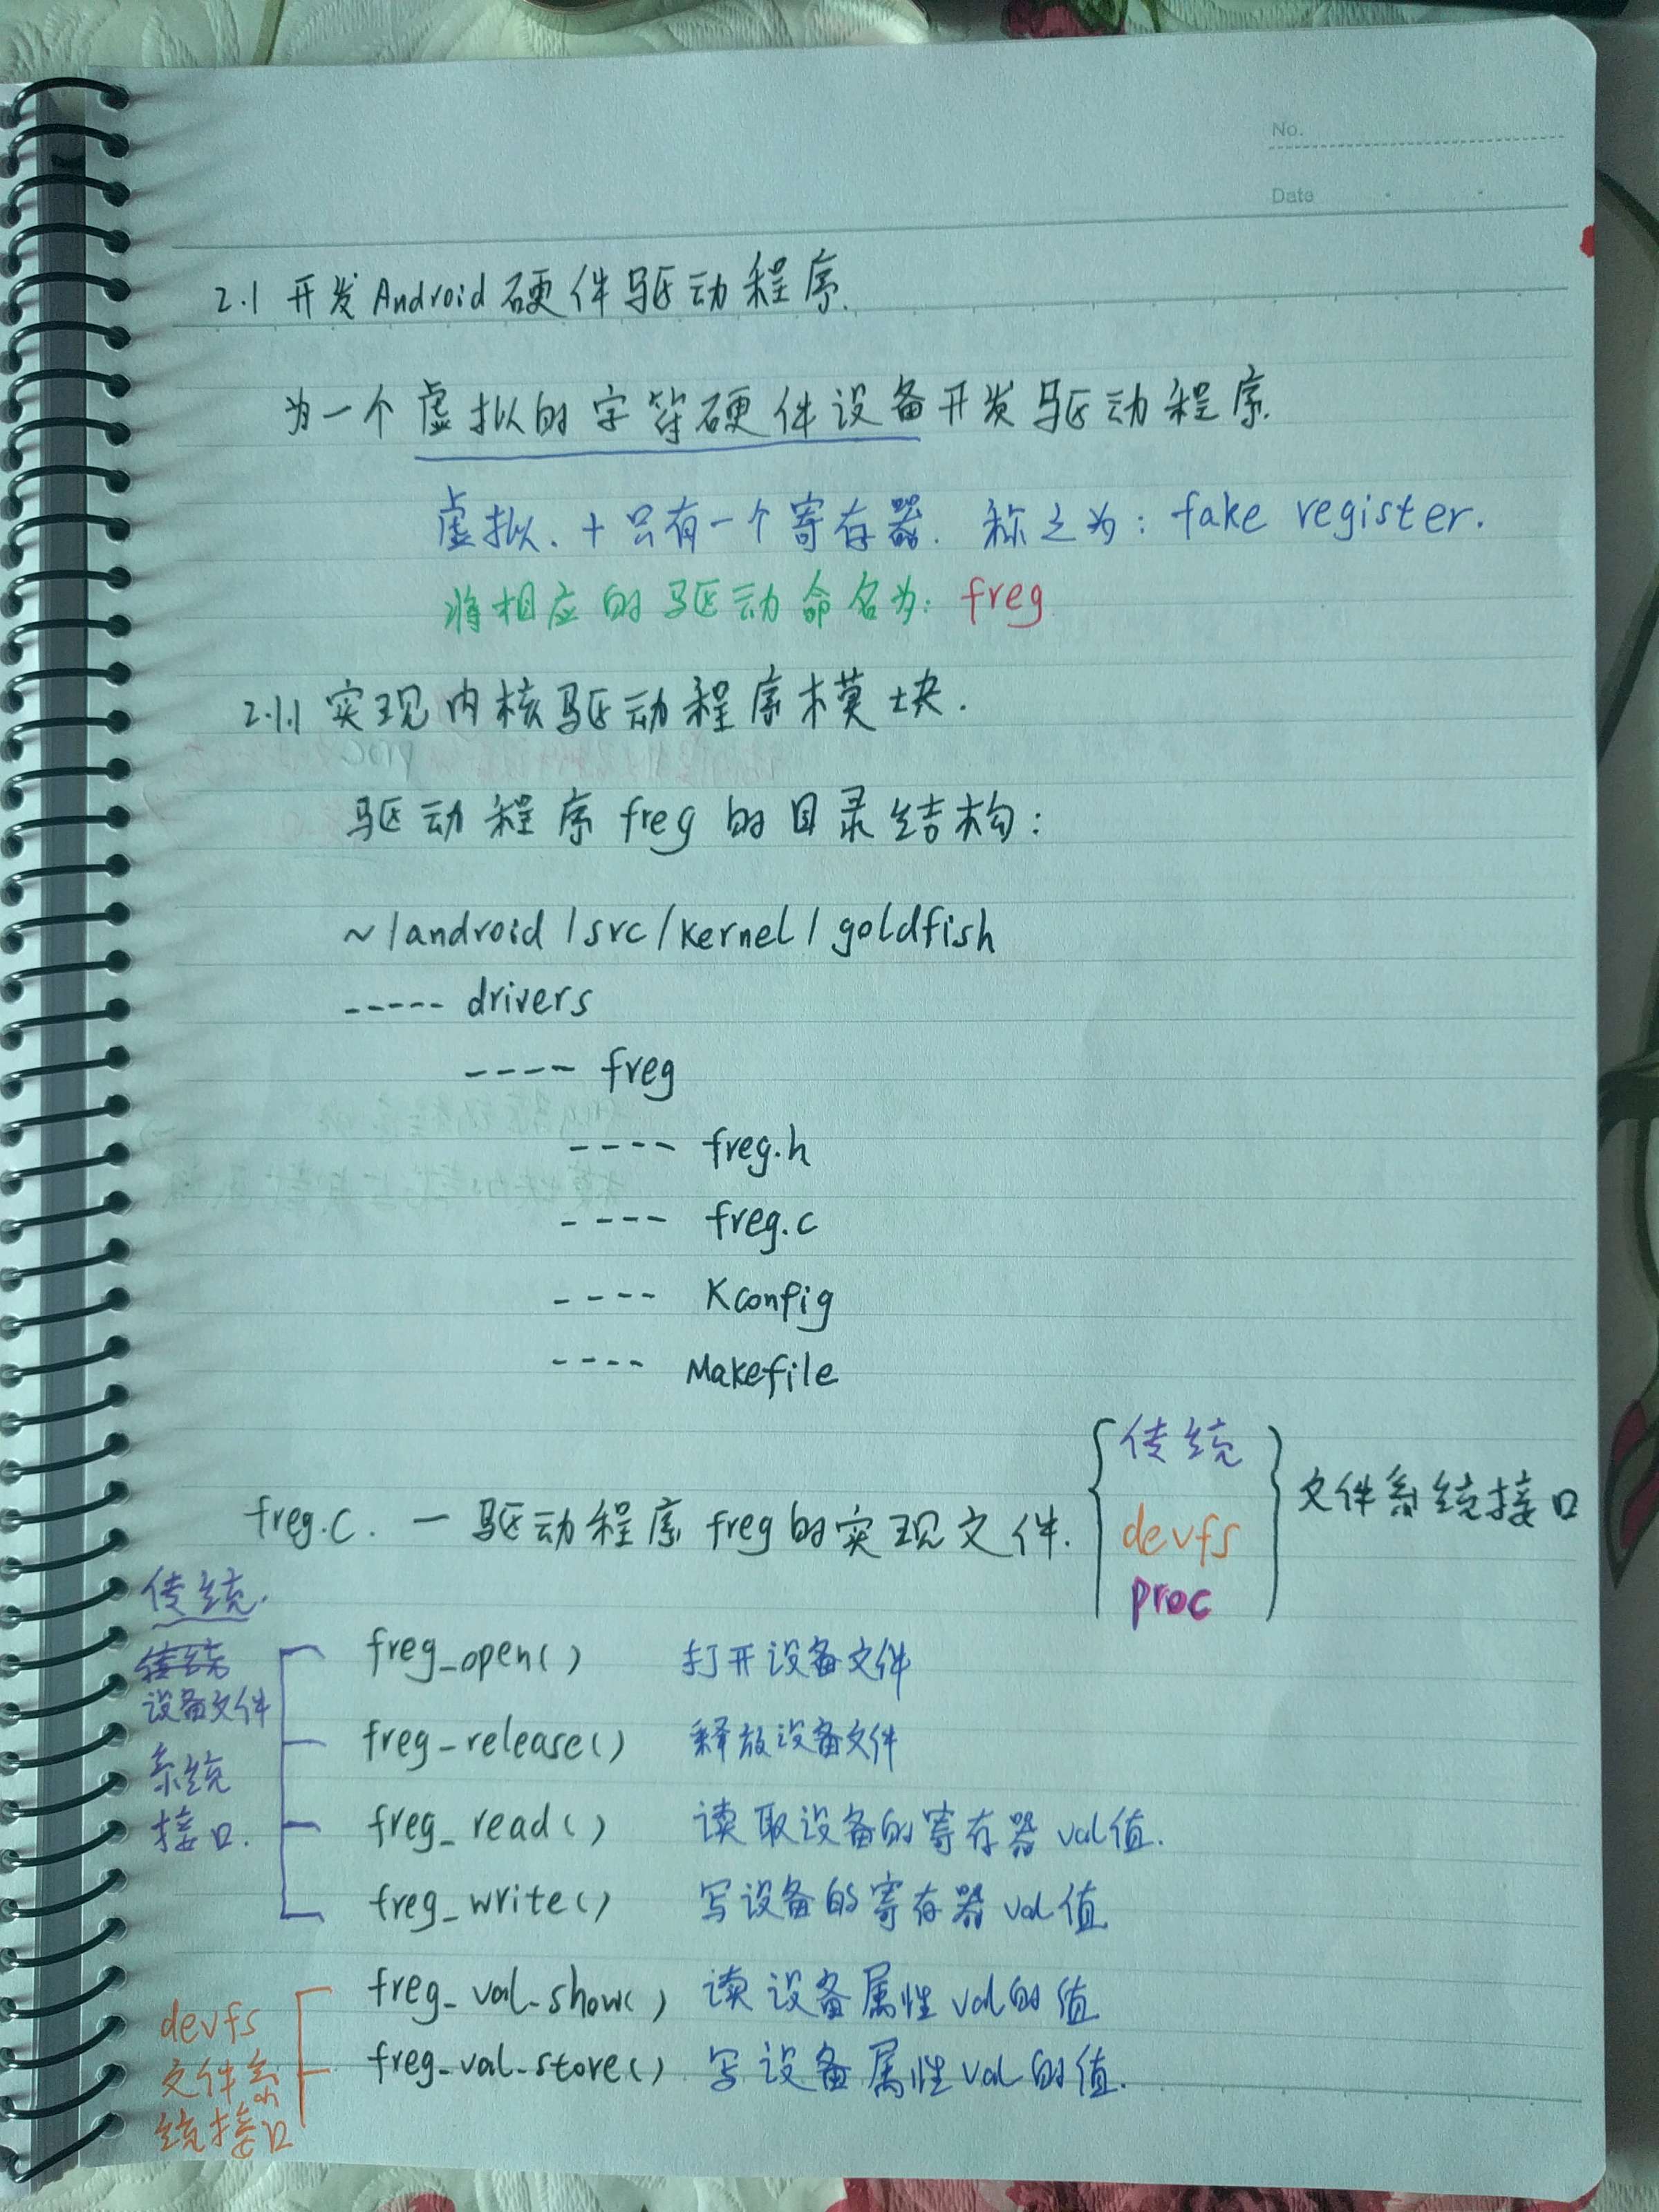 No.
Date
2.1 开发Android硬件驱动程序.
为一个虚拟的字符硬件设备开发驱动程序.
虚拟. + 只有一个寄存器. 称之为: fake register.
将相应的驱动命名为: freg
2.1.1 实现内核驱动程序模块.
驱动程序freg的目录结构:
~/android/src/kernel/goldfish
----- drivers
---- freg
---- freg.h
---- freg.c
---- Kconfig
---- Makefile
freg.c. — 驱动程序freg的实现文件.
传统
devfs
proc
文件系统接口
传统.
设备文件
系统
接口.
freg_open() 打开设备文件
freg_release() 释放设备文件
freg_read() 读取设备的寄存器val值.
freg_write() 写设备的寄存器val值
devfs
文件系
统接口
freg_val_show() 读设备属性val的值
freg_val_store() 写设备属性val的值.